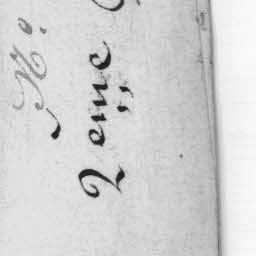 N.º
2 eme